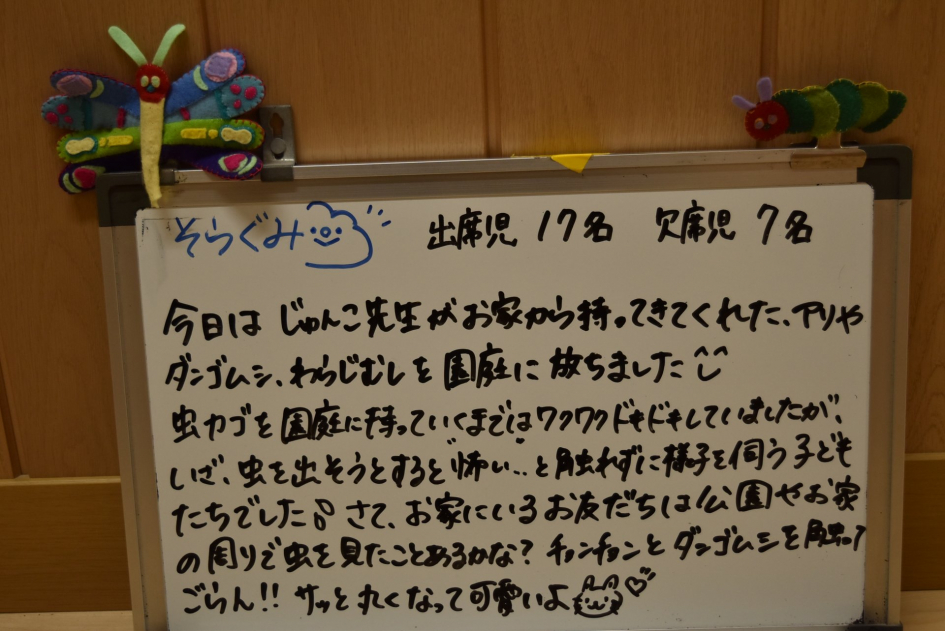 そらぐみ 出席児 17名 欠席児 7名
今日は じゅんこ先生が お家から持ってきてくれた、アリや
ダンゴムシ、わらじむしを 園庭に 放ちました^^
虫カゴを園庭に持っていくまではワクワクドキドキしていましたが、
いざ、虫を出そうとすると"怖い…"と触れずに様子を伺う子ども
たちでした♪ さて、お家にいるお友だちは公園やお家
の周りで虫を見たことあるかな? チョンチョンとダンゴムシを触って
ごらん!! サッと丸くなって可愛いよ♡